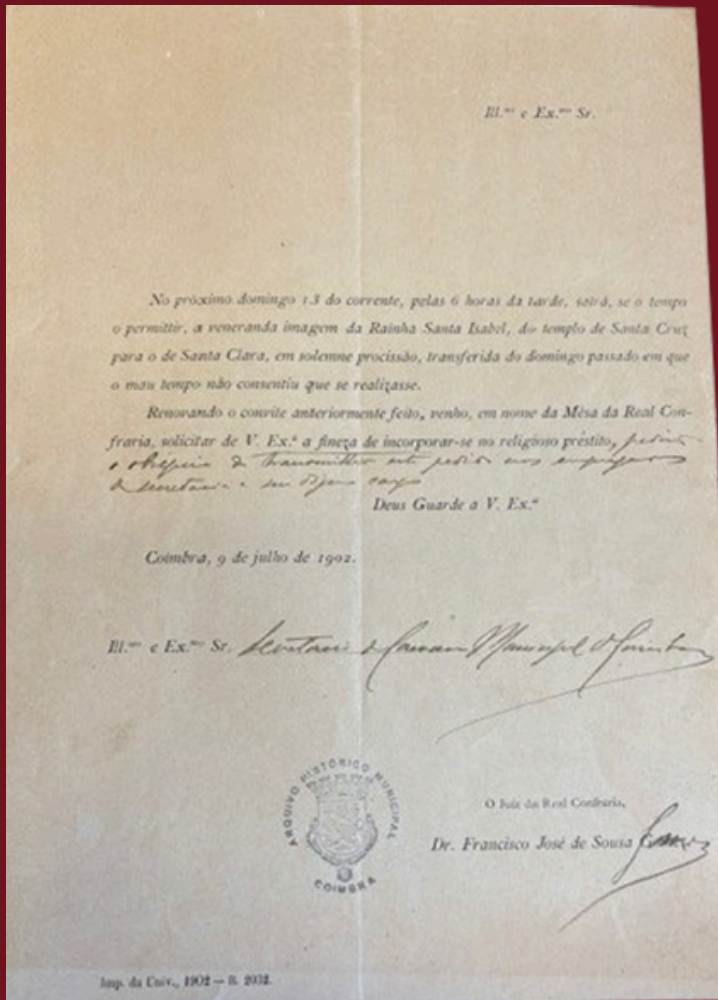 Ill.mo e Ex.mo Sr.
No próximo domingo 13 do corrente, pelas 6 horas da tarde, sairá, se o tempo
o permittir, a veneranda imagem da Rainha Santa Isabel, do templo de Santa Cruz
para o de Santa Clara, em solemne procissão, transferida do domingo passado em que
o mau tempo não consentiu que se realizasse.
Renovando o convite anteriormente feito, venho, em nome da Mêsa da Real Con-
fraria, solicitar de V. Ex.ª a fineza de incorporar-se no religioso préstito, pedindo
o obsequio de transmittir este pedido aos empregados
da secretaria a seu digno cargo
Deus Guarde a V. Ex.ª
Coimbra, 9 de julho de 1902.
Ill.mo e Ex.mo Sr. Secretario da Camara Municipal de Coimbra
ARQUIVO HISTÓRICO MUNICIPAL
COIMBRA
O Juiz da Real Confraria,
Dr. Francisco José de Sousa Gomes
Imp. da Univ., 1902 — R. 2032.